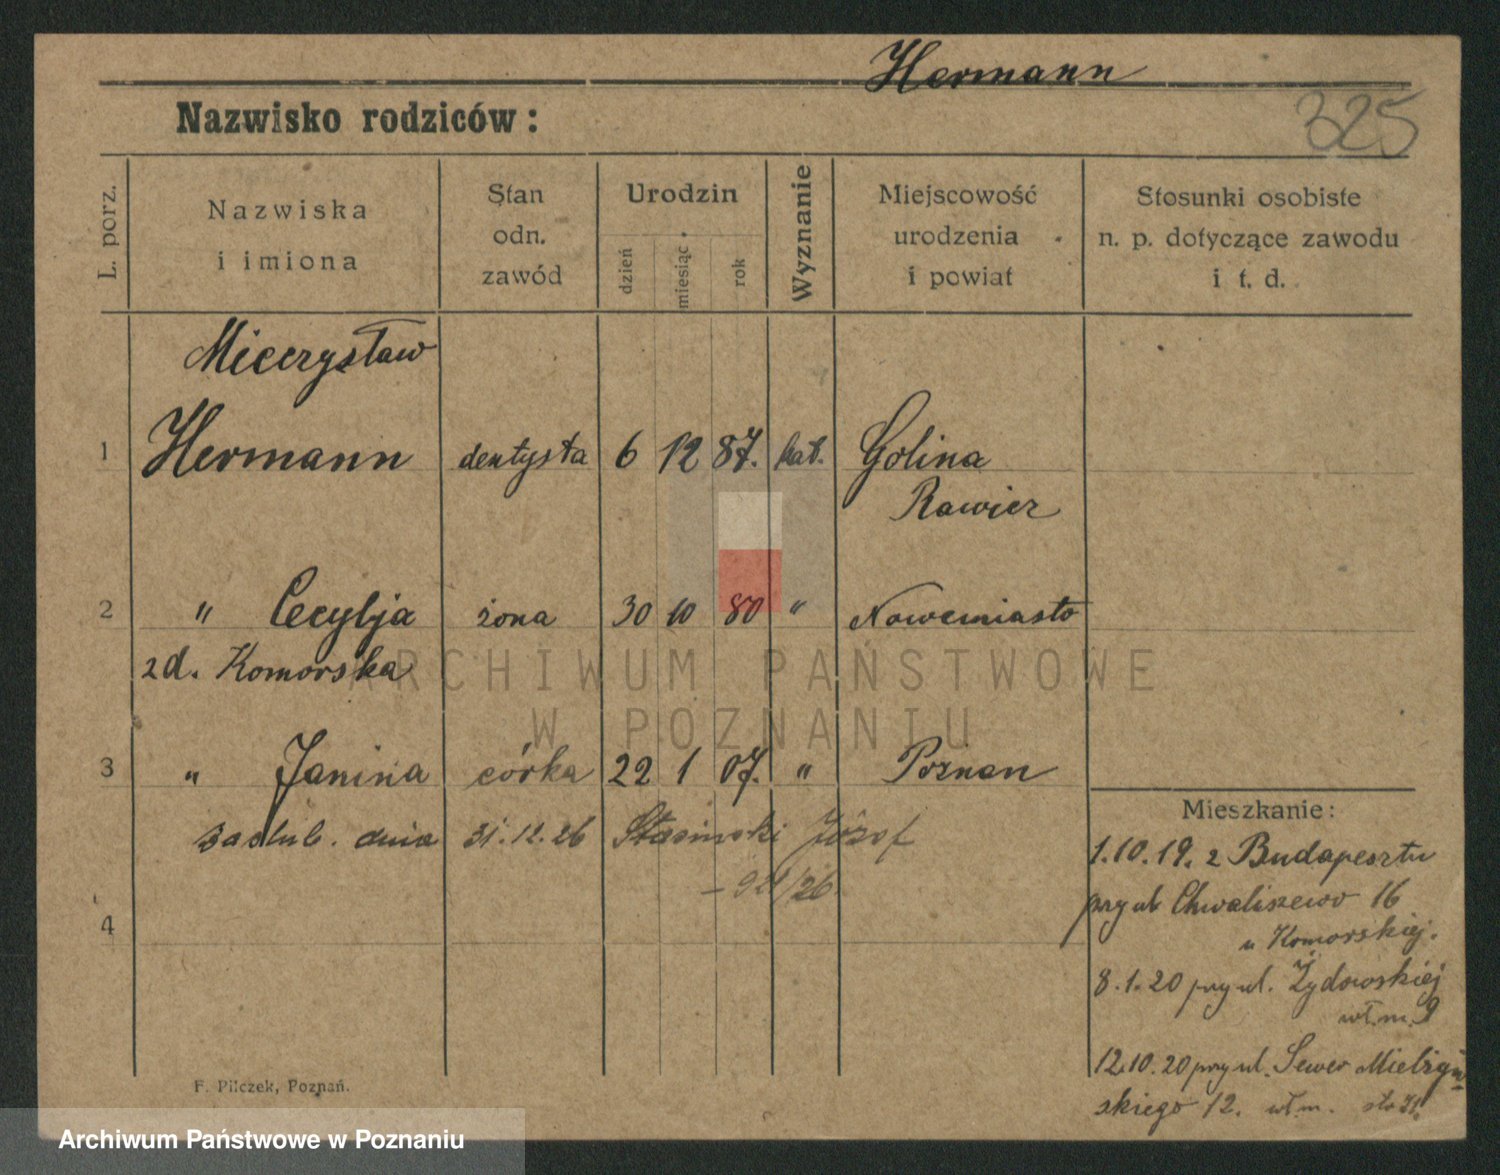 Hermann
325
Nazwisko rodziców:
L. porz.
Nazwiska
i imiona
Stan
odn.
zawód
Urodzin
dzień
miesiąc
rok
Wyznanie
Miejscowość
urodzenia
i powiat
Stosunki osobiste
n. p. dotyczące zawodu
i t. d.
Mieczysław
1 Hermann dentysta 6 12 87. kat. Golina
Rawicz
2 " Cecylja żona 30 10 80 " Nowemiasto
zd. Komorska
ARCHIWUM PAŃSTWOWE
W POZNANIU
3 " Janina córka 22 1 07. " Poznan
zaślub. dnia 31.12.26 Stasinski Józef
/26
4
Mieszkanie:
1.10.19. z Budapesztu
przy ul Chwaliszewo 16
u Komorskiej.
8.1.20 przy ul. Żydowskiej
wł.m. 9
12.10.20 przy ul. Sewer Mielżyń-
skiego 12. wł.m.
F. Pilczek, Poznań.
Archiwum Państwowe w Poznaniu